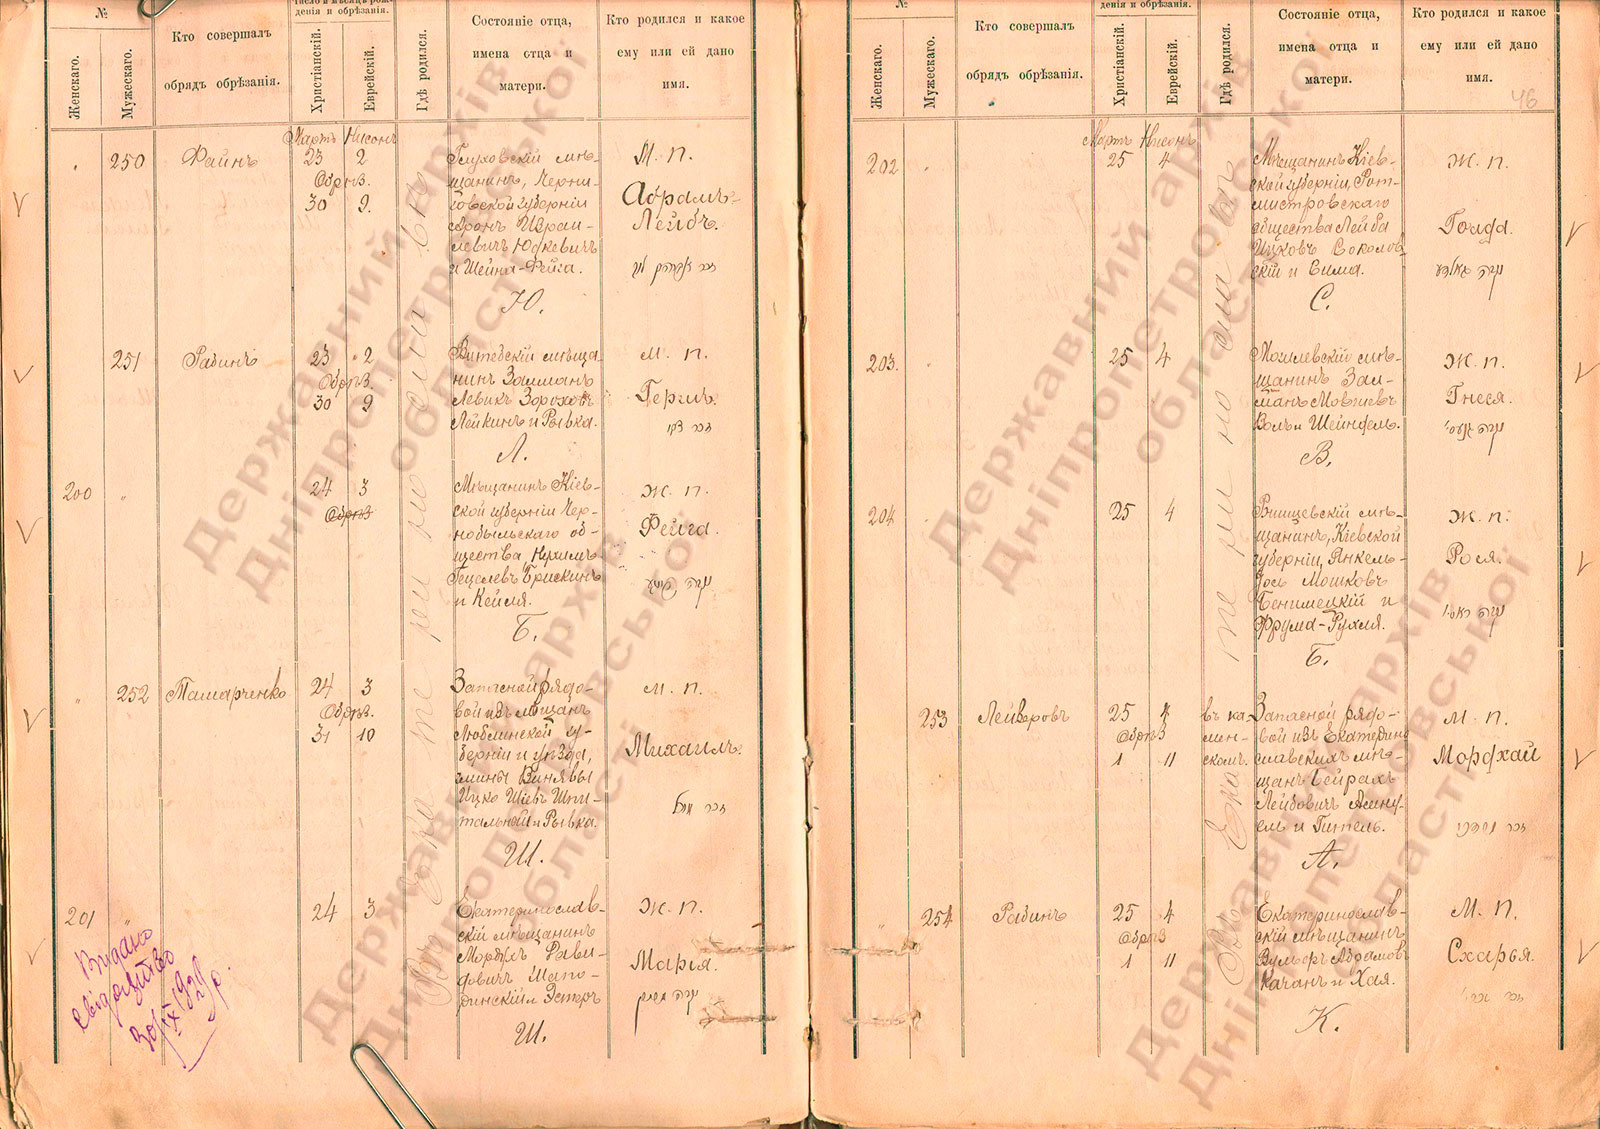 №
Число и мѣсяцъ рож-
денія и обрѣзанія.
Женскаго.
Мужескаго.
Кто совершалъ
обрядъ обрѣзанія.
Христіанскій.
Еврейскій.
Гдѣ родился.
Состояніе отца,
имена отца и
матери.
Кто родился и какое
ему или ей дано
имя.
Мартъ Нисонъ
250 Файнъ 23 2
Обрѣз.
30 9.
Глуховскій мѣ-
щанинъ, Черни-
говской губерніи
Аронъ Израи-
левичъ Юдкевичъ
и Шейна-Фейга.
Ю.
М. п.
Абрамъ-
Лейбъ.
251 Рабинъ 23 2
Обрѣз.
30 9
Витебскій мѣща-
нинъ Залманъ
Лейкинъ и Рывка.
Л.
м. п.
Герцъ.
200 " 24 3
Обрѣз
Мѣщанинъ Кіев-
ской губерніи Чер-
нобыльскаго об-
щества Нухимъ
Гецелевъ Брискинъ
и Кейля.
Б.
Ж. п.
Фейга.
" 252 Тамарченко 24 3
Обрѣз.
31 10
Запасной рядо-
вой изъ мѣщанъ
Люблинской гу-
берніи и уѣзда,
гмины Винявы
Ицко Шіевъ Шпи-
тальный и Рывка.
Ш.
м. п.
Михаилъ.
201 " 24 3
Екатеринослав-
скій мѣщанинъ
Мордухъ Рави-
довичъ Шапо-
динскій и Эстеръ
Ш.
Ж. п.
Марія.
Видано
свідоцтво
30/IX 1929 р.
въ Екатеринославѣ
№
дения и обрѣзанія.
Женскаго.
Мужескаго.
Кто совершалъ
обрядъ обрѣзанія.
Христіанскій.
Еврейскій.
Гдѣ родился.
Состояніе отца,
имена отца и
матери.
Кто родился и какое
ему или ей дано
имя.
46
Мартъ Нисонъ
202 " 25 4
Мѣщанинъ Кіев-
ской губерніи, Рот-
мистровскаго
общества Лейба
Ицковъ Соколов-
скій и Сима.
С.
Ж. п.
Голда.
203. 25 4
Могилевскій мѣ-
щанинъ Зал-
манъ Мовшевъ
Волъ и Шейндель.
В.
Ж. п.
Гнеся.
204 25 4
щанинъ, Кіевской
губерніи, Янкель-
Іось Мошковъ
Бенимецкій и
Фрума-Рухля.
Б.
Ж. п.
Рося.
253 Лейкеровъ 25 4
Обрѣз
1 11
въ ка-
мен-
скомъ.
Запасной рядо-
вой изъ Екатерино
славскихъ мѣ-
щанъ Бейрахъ
Лейбовичъ Асину-
ель и Гитель.
А.
М. п.
Мордхай
254 Рабинъ 25 4
Обрѣз
1 11
Екатеринослав-
скій мѣщанинъ
Вульфъ Абрамовъ
Качанъ и Хая.
К.
М. п.
Схарья.
Державний архів
Дніпропетровської
області